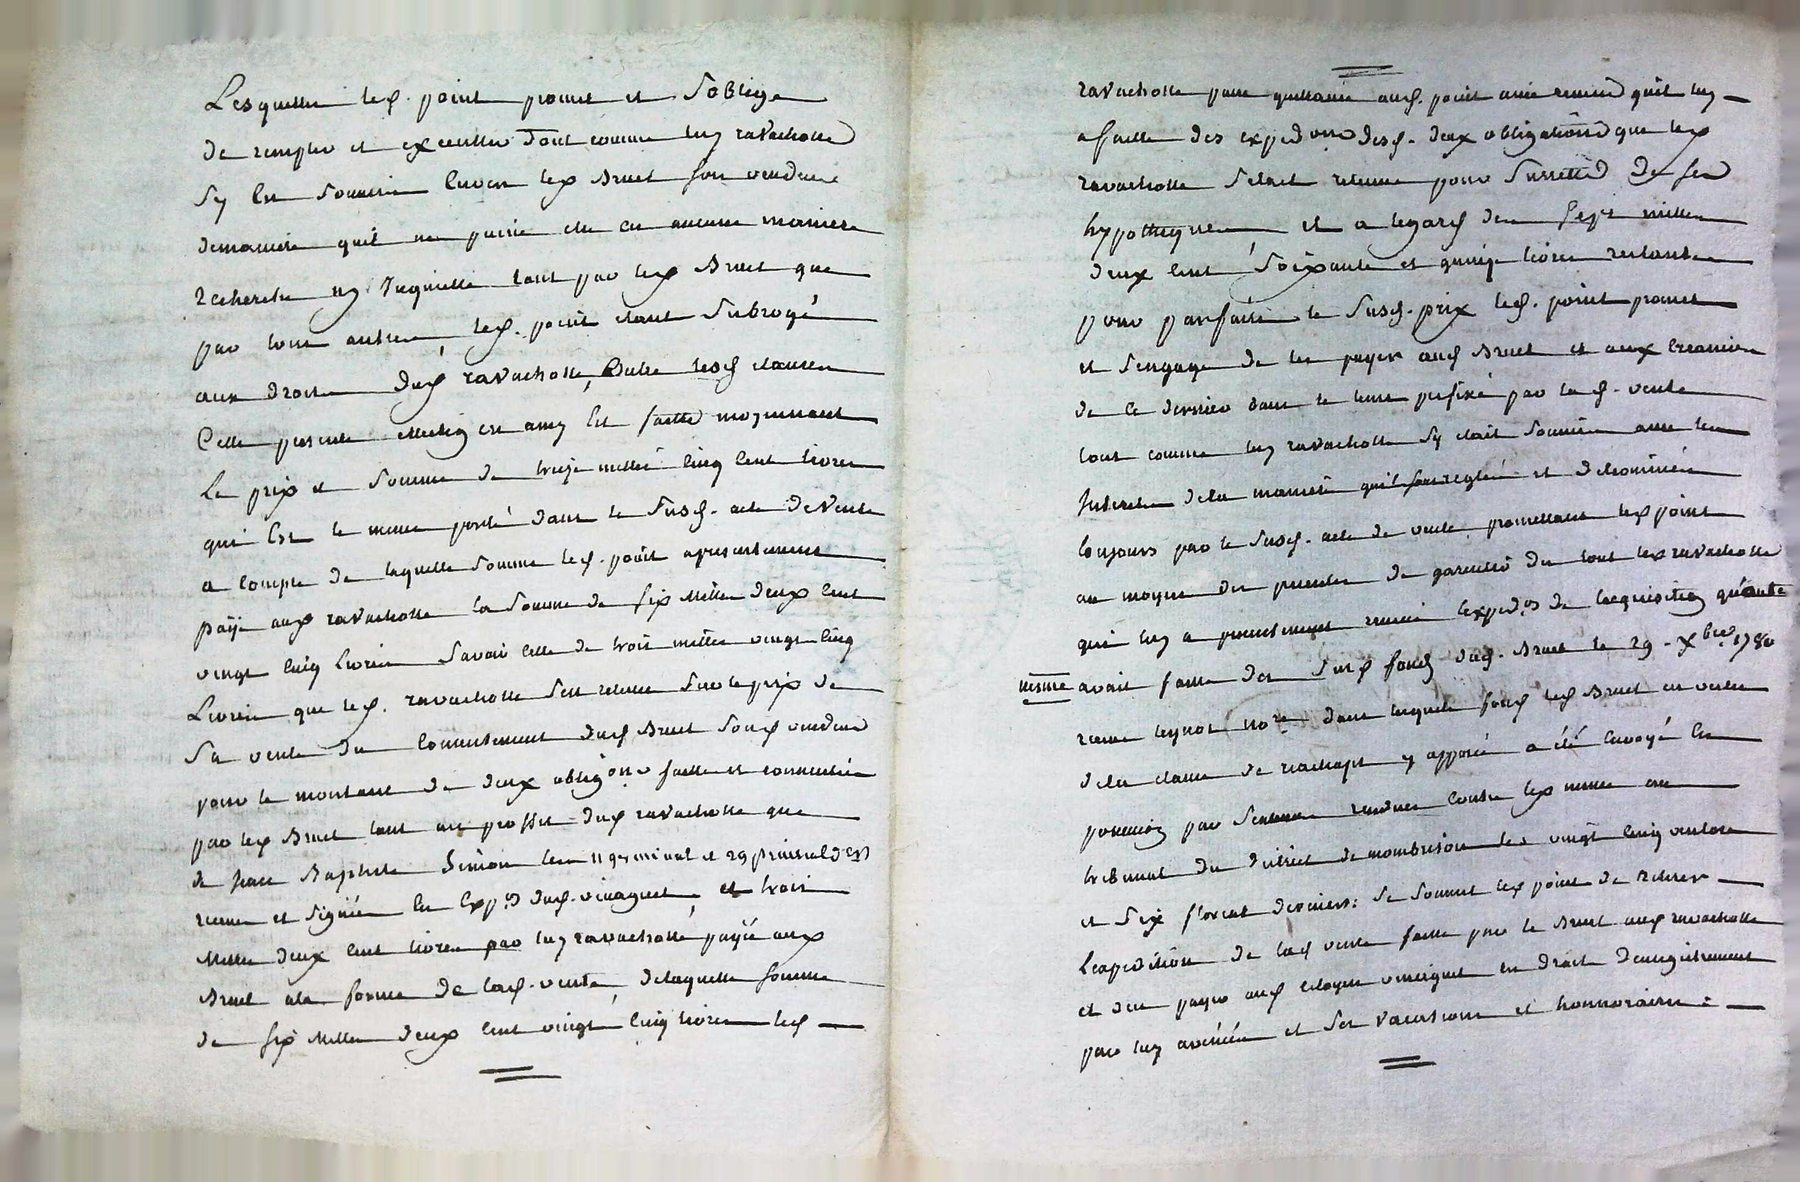 Lesquelles led. point promet et soblige
de remplir et executter dont comme luy ravachotte
sy est soumis envers led Bruet son vendeur
demaniere quil ne puisse etre en aucune maniere
recherche ny inquietté tant par led Bruet que
par tous autres, led. point etant subrogé
aux droits dud ravachotte, outre lesd clauses
Cette presente election en amy est faitte moyennant
Le prix et somme de treize mille cinq cent livres
qui est le meme porté dans le susd. acte de vente
a compte de laquelle somme led. point a presentement
payé aud ravachotte la somme de six mille deux cent
vingt cinq Livres savoir celle de trois mille vingt cinq
Livres que led. ravachotte sest retenu sur le prix de
sa vente du consentement dud Bruet sond vendeur
pour le montant de deux obligons faittes et consenties
par led Bruet tant au proffit dud ravachotte que
de Jean Baptiste Simon les 11 germinal et 29 prairial
recues et signées en exped dud. vinagnet, et trois
Mille deux cent livres par luy ravachotte payés aud
Bruet a la forme de lad. vente, delaquelle somme
de six Mille deux cent vingt cinq livres led
ravachotte passe quittance aud. point avec remise quil luy
a faitte des expedons desd. deux obligations que led
ravachotte setoit retenue pour surretté de ses
hypotheques, et a legard des sept mille
deux cent soixante et quinze livres restantes
pour parfaire le susd. prix led. point promet
et sengage de les payer aud Bruet et aux creanciers
de ce dernier dans le tems prefixé par lad. vente
tout comme luy ravachotte sy etoit soumis avec les
Interets dela maniere quils sont reglés et determinés
toujours par le susd. acte de vente promettant led point
au moyen des presentes de garentir du tout led ravachotte
qui luy a presentement remis lexpedon de lacquisition
meme avait faitte des susd fonds dud. Bruet le 29 Xbre 1780
recue not re dans lesquels fonds led Bruet en vertu
dela clause de reachapt y apposée a été envoyé en
possession par sentence rendue contre led meme au
tribunal du district de montbrison les vingt cinq ventose
et six floreal derniers: se soumet led point de retirer
Lexpedition de lad vente faitte par le Bruet aud ravachotte
et den payer aud citoyen vinagnet les droits denregistrement
par luy avancés et ses vacations et honnoraires: